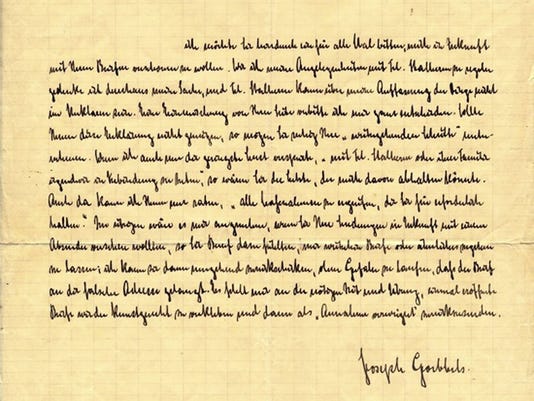 ich möchte Sie hierdurch ein für alle Mal bitten, mich in Zukunft
mit Ihren Briefen verschonen zu wollen. Wie ich meine Angelegenheiten mit Frl. Stalherm zu regeln
gedenke ist durchaus meine Sache, und Frl. Stalherm kann über meine Auffassung der Dinge nicht
im Unklaren sein. Eine Einmischung von Ihrer Seite verbitte ich mir ganz entschieden. Sollte
Ihnen diese Erklärung nicht genügen, so mögen Sie ruhig Ihre „weitgehenden Schritte" unter-
nehmen. Wenn ich auch nur die geringste Lust verspürte, „mit Frl. Stalherm oder ihrer Familie
irgendwie in Verbindung zu treten", so wären Sie die Letzte, die mich davon abhalten könnte.
Auch da kann ich Ihnen nur raten, „alle Maßnahmen zu ergreifen, die Sie für erforderlich
halten." Im übrigen wäre es mir angenehm, wenn Sie Ihre Sendungen in Zukunft mit einem
Absender versehen wollten, so Sie Bedürfnis fühlten, mir weitere Briefe oder ähnliches zugehen
zu lassen; ich kann sie dann umgehend zurückschicken, ohne Gefahr zu laufen, daß der Brief
an die falsche Adresse gelangt. Es fehlt mir an der nötigen Zeit und Übung, einmal eröffnete
Briefe wieder kunstgerecht zu verkleben und dann als „Annahme verweigert" zurückzusenden.
Joseph Goebbels.